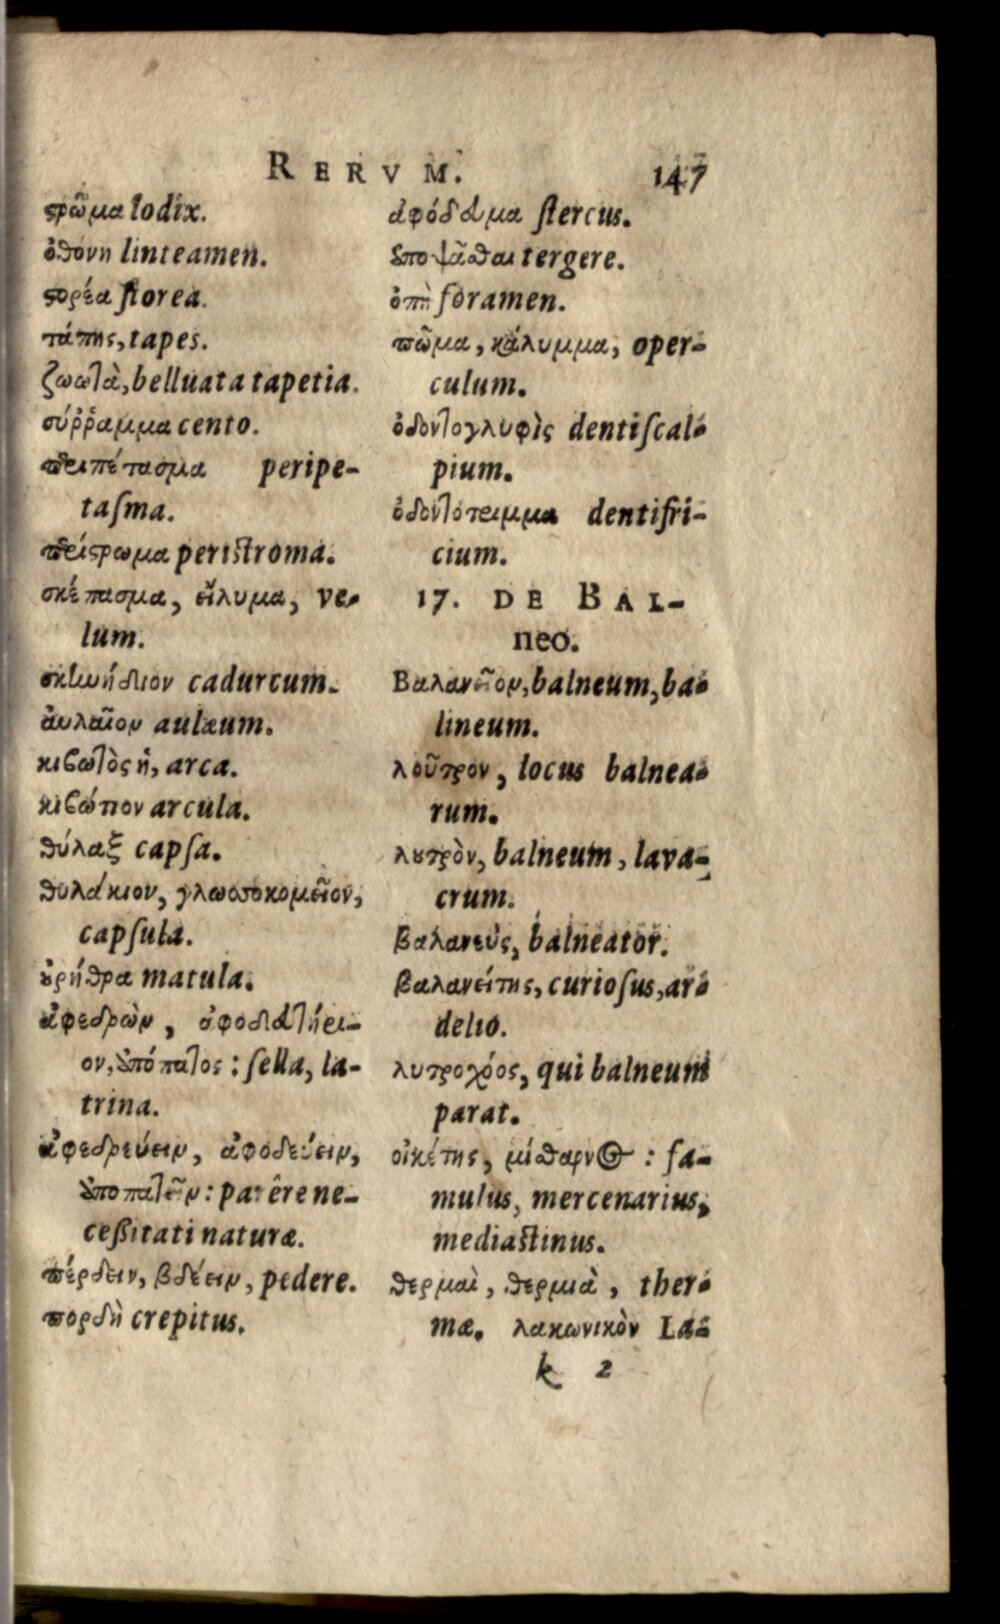 RERVM. 147
ϛρῶμα lodix.
ὀθόνη linteamen.
ϛορέα ſtorea.
τάπης, tapes.
ζωωτὰ, belluata tapetia.
σύῤῥαμμα cento.
περιπέτασμα peripe-
taſma.
περίϛρωμα periſtroma.
σκέπασμα, εἴλυμα, ve-
lum.
σκηνήδιον cadurcum.
ἀυλαῖον aulæum.
κιβωτὸς ἡ, arca.
κιβώτιον arcula.
θύλαξ capſa.
θυλάκιον, γλωσσοκομεῖον,
capſula.
ȣρήθρα matula.
ἀφεδρὼν, ἀφοδιατήρι-
ον, ἀπόπατος : ſella, la-
trina.
ἀφεδρεύειν, ἀφοδεύειν,
ἀποπατεῖν : parêre ne-
ceßitati naturæ.
πέρδειν, βδέειν, pedere.
πορδὴ crepitus.
ἀφόδευμα ſtercus.
ἀποψᾶσθαι tergere.
ὀπὴ foramen.
πῶμα, κάλυμμα, oper-
culum.
ὀδοντογλυφὶς dentiſcal-
pium.
ὀδοντότριμμα dentifri-
cium.
17. DE BAL-
neo.
Βαλανεῖον, balneum, ba-
lineum.
λοῦτρον, locus balnea-
rum.
λȣτρὸν, balneum, lava-
crum.
βαλανεὺς, balneator.
βαλανείτης, curioſus, ar-
delio.
λυτροχόος, qui balneum
parat.
οἰκέτης, μίσθαρνος : fa-
mulus, mercenarius,
mediaſtinus.
θερμαὶ, θερμιὰ, ther-
mæ. λακωνικὸν La-
k 2